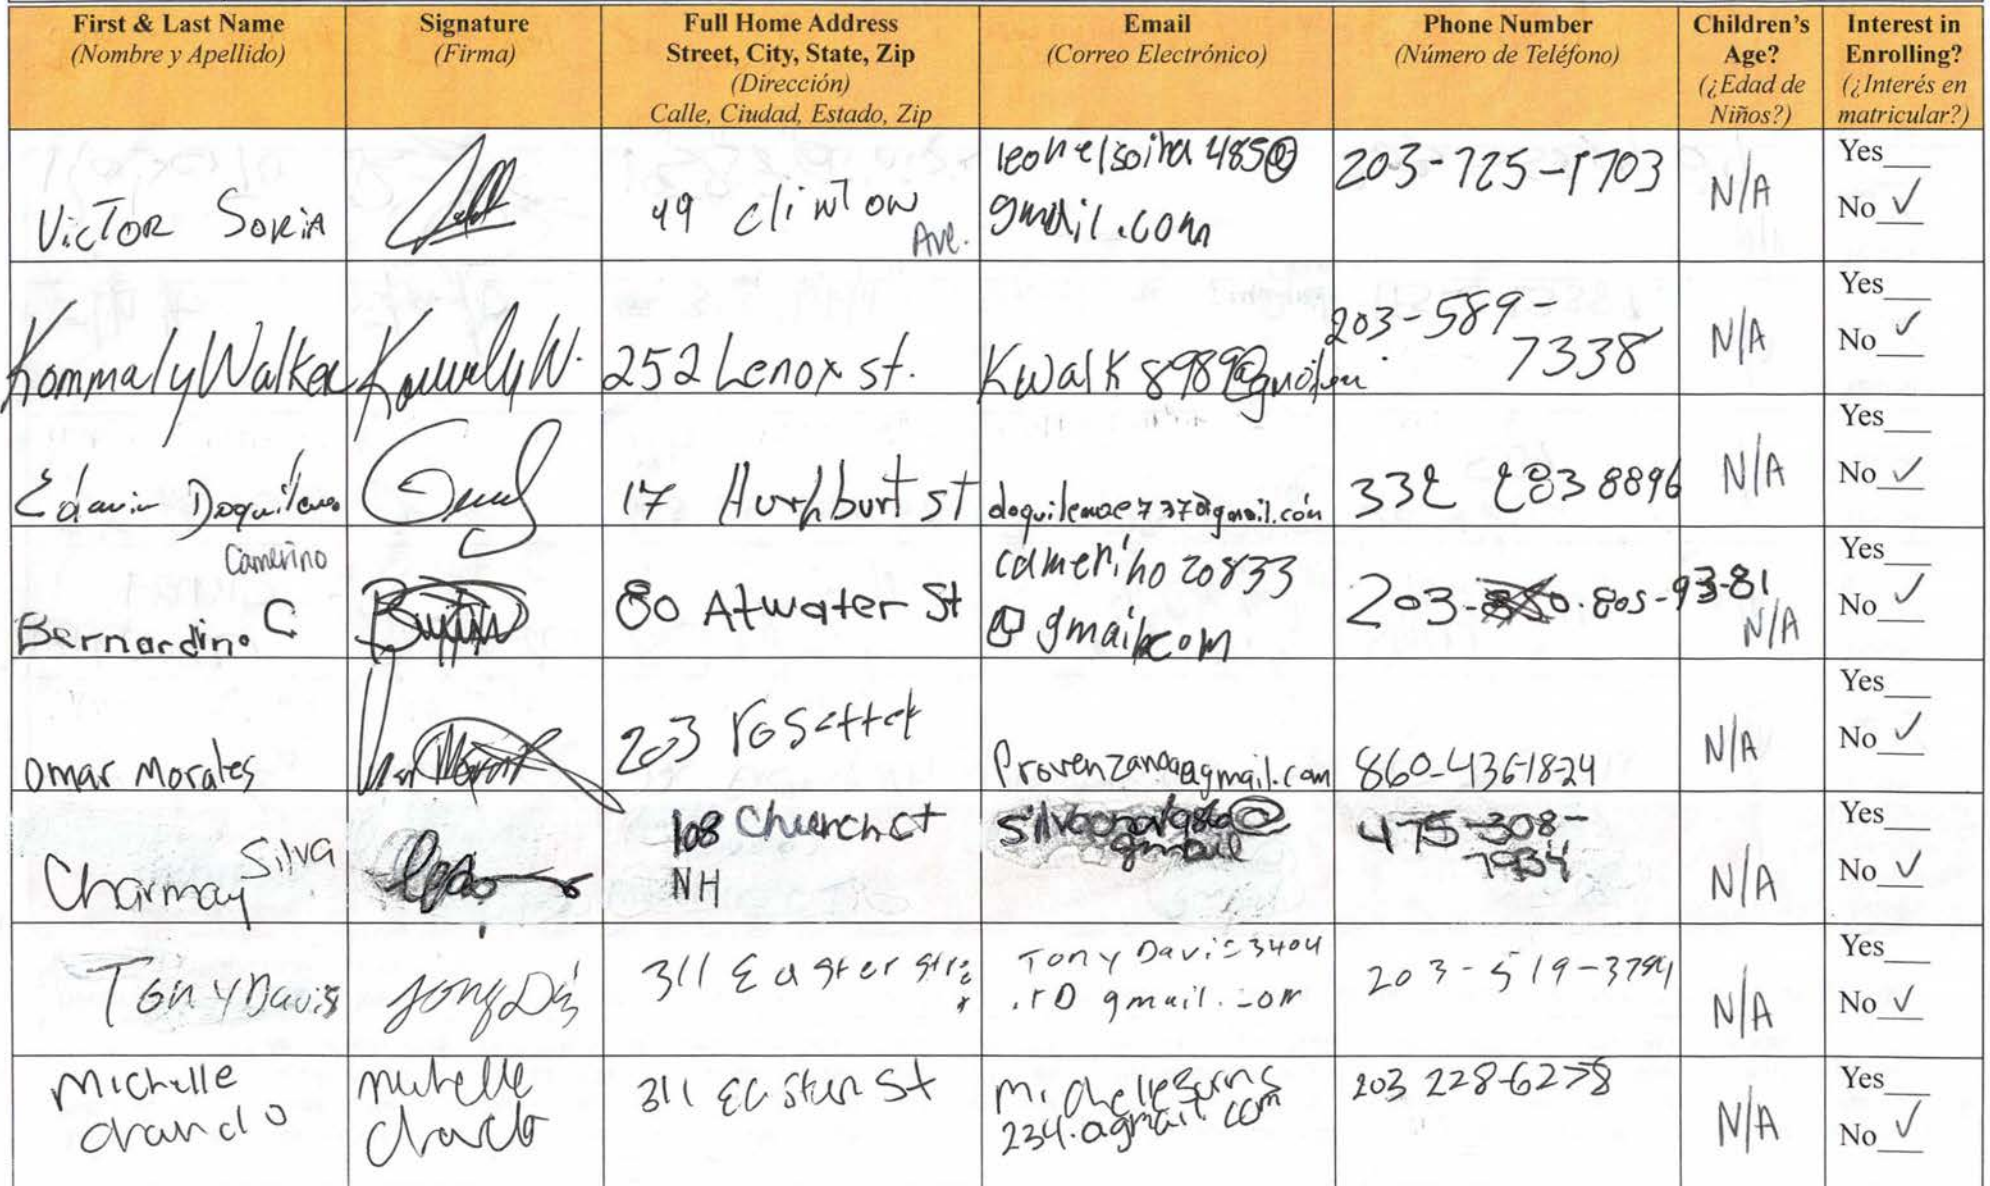 First & Last Name
(Nombre y Apellido)
Signature
(Firma)
Full Home Address
Street, City, State, Zip
(Dirección)
Calle, Ciudad, Estado, Zip
Email
(Correo Electrónico)
Phone Number
(Número de Teléfono)
Children's
Age?
(¿Edad de
Niños?)
Interest in
Enrolling?
(¿Interés en
matricular?)
VicTOR SORiA
49 clinton
Ave.
485@
gmail.com
203-725-1703
N/A
Yes
No ✓
Kommaly Walker
252 Lenox st.
Kwalk8989@
203-589-
7338
N/A
Yes
No ✓
Edwin
17 Hurhburt st
332 283 8896
N/A
Yes
No ✓
Camerino
Bernardino C
80 Atwater St
camerino20833
@gmail.com
203- 805-93-81
N/A
Yes
No ✓
Omar Morales
203 rosette
@gmail.com
860-436-18-24
N/A
Yes
No ✓
Silva
Charmay
108 Church st
NH
475-308-
7934
N/A
Yes
No ✓
Tony Davis
311
Tony Davis 3404
gmail.com
203-519-
N/A
Yes
No ✓
Michelle
Michelle
311 Eastern St
234.@gmail.com
203 228-6278
N/A
Yes
No ✓